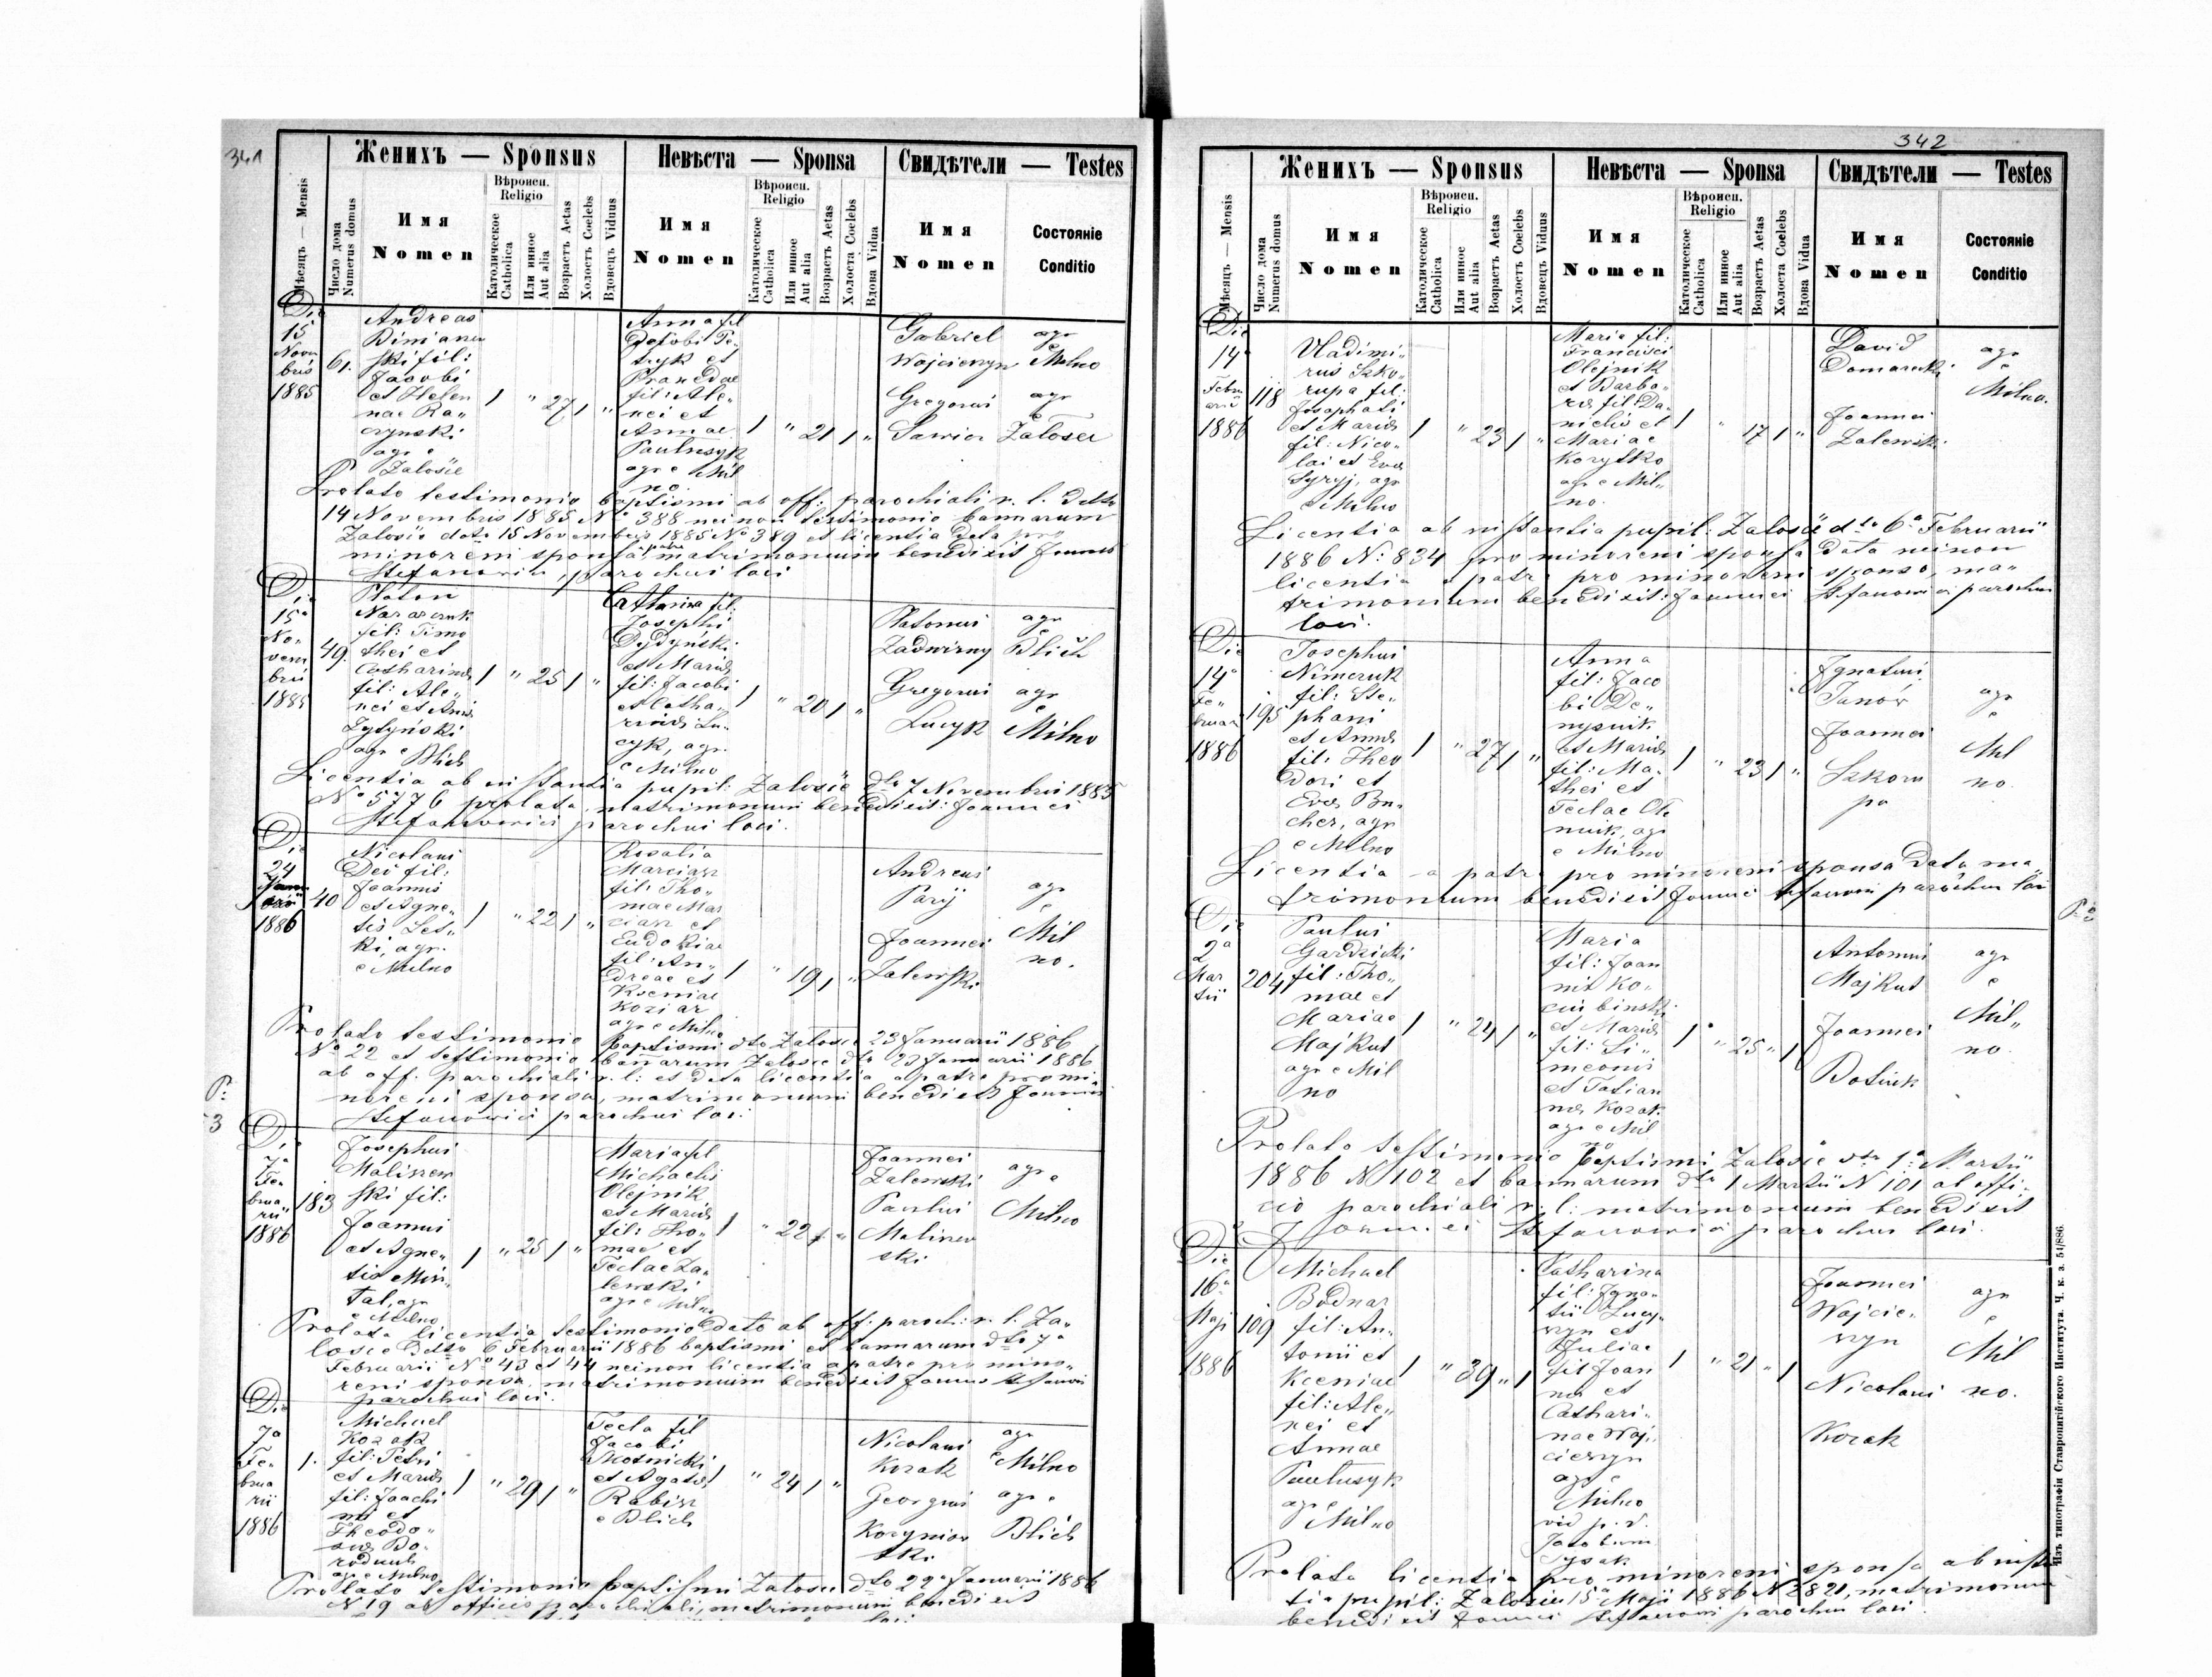 341
Женихъ — Sponsus
Невѣста — Sponsa
Свидѣтели — Testes
Мѣсяцъ — Mensis
Число дома
Numerus domus
Имя
Nomen
Вѣроисп.
Religio
Католическое
Catholica
Или инное
Aut alia
Возрастъ Aetas
Холостъ Coelebs
Вдовецъ Viduus
Имя
Nomen
Вѣроисп.
Religio
Католическое
Catholica
Или инное
Aut alia
Возрастъ Aetas
Холоста Coelebs
Вдова Vidua
Имя
Nomen
Состояніе
Conditio
Die
15
Novem
bris
1885
61.
Andreas
ski fil:
Jacobi
et Helen
nae Ra„
czynski
agr e
Zalośce
1 „ 27 1 „
Anna fil
Jacobi Pe„
tryk et
Praxedae
fil: Ale„
xei et
Annae
Pautusyk
agr e Mil
no.
1 „ 21 1 „
Gabriel
Wojcieszyn
Gregorius
Sawior
agr
e
Milno
agr
e
Zalosce
Prolato testimonio baptismi ab off: parochiali r. l. ddto
14 Novembris 1885 No 388 neinon testimonio bannarum
Zalosie dato 15 Novembris 1885 No 389 et licentia data pro
minoreni sponsa a patre matrimonium benedixit Joannes
Stefanowicz, parochus loci
Die
15a
No„
vem
bris
1885
49.
Platon
Nazarczuk
fil: Timo
thei et
Catharinae
fil: Ale„
xei et Annae
Zytyński
agr e Blich
1 „ 25 1 „
Catharina fil:
Josephi
Dydyński
et Mariae
fil: Jacobi
et Catha„
rinae Lu„
cyk, agr.
e Milno
1 „ 20 1 „
Platonus
Zadwirny
Gregorius
Lucyk
agr
e
Blich
agr
e
Milno
Licentia ab instantia pupil: Zalosie dto 7 Novembris 1885
No 5776 prolata, matrimonium benedixit: Joannes
Stefanowicz parochus loci.
Die
24
Janu
arii
1886
40
Nicolaus
Deć fil:
Joannis
et Agne„
tis Les„
ki, agr.
e Milno
1 „ 22 1 „
Rosalia
Marciasz
fil: Tho„
mae Mar
ciasz et
Eudokiae
fil: An„
dreae et
Kseniae
Koziar
agr e Milno
1 „ 19 1 „
Andreas
Pary
Joannes
Zalewski
agr
e
Mil
no.
Prolato testimonio baptismi dto Zalosce 23 Januarii 1886
No 22 et testimonio bannarum Zalosce dto 23 Januarii 1886
ab off. parochiali r. l: et data licentia a patre pro mi„
noreni sponsa, matrimonium benedixit Joannes
Stefanowicz parochus loci.
P:
53
Die
7a
Fe„
brua
rii
1886
183
Josephus
Maliszew
ski fil:
Joannis
et Agne„
tis Min„
tal, agr
e Milno
1 „ 25 1 „
Maria fil
Michaelis
Olejnik
et Mariae
fil: Tho„
mae et
Teclae Za„
lewski
agr e Milno
1 „ 22 1 „
Joannes
Zalewski
Paulus
Maliszew
ski
agr e
Milno
Prolata licentia testimonio dato ab off. paroch: r. l. Za„
losce ddto 6 Februarii 1886 baptismi et bannarum dto 7a
Februarii No 43 et 44 neinon licentia a patre pro mino„
reni sponsa, matrimonium benedixit Joannes Stefanowicz
parochus loci.
Die
7a
Fe„
brua
rii
1886
1.
Michael
Kozak
fil: Petri
et Mariae
fil: Joachi
mi et
Theodo„
siae Bo„
rodiuch
agr e Milno
1 „ 29 1 „
Tecla fil
Jacobi
Skotnicki
et Agatae
Rabisz
e Blich
1 „ 24 1 „
Nicolaus
Kozak
Georgius
Koryniow
ski
agr
e Milno
agr e
Blich
Prolato testimonio baptismi Zalosce dto 22a Januarii 1886
N 19 ab officio parochiali, matrimonium benedixit
342
Женихъ — Sponsus
Невѣста — Sponsa
Свидѣтели — Testes
Мѣсяцъ — Mensis
Число дома
Numerus domus
Имя
Nomen
Вѣроисп.
Religio
Католическое
Catholica
Или инное
Aut alia
Возрастъ Aetas
Холостъ Coelebs
Вдовецъ Viduus
Имя
Nomen
Вѣроисп.
Religio
Католическое
Catholica
Или инное
Aut alia
Возрастъ Aetas
Холоста Coelebs
Вдова Vidua
Имя
Nomen
Состояніе
Conditio
Die
14a
Febru
arii
1886
118
Vladimi„
rus Szko„
rupa fil:
Josaphati
et Mariae
fil: Nico„
lai et Evae
Syryj, agr
e Milno
1 „ 23 1 „
Maria fil:
Francisci
Olejnik
et Barba„
rae fil: Da„
nielis et
Mariae
Korytko
agr e Mil„
no.
1 „ 17 1 „
David
Domareck.
Joannes
Zalewsk.
agr
e
Milno.
Licentia ab instantia pupil: Zalosce dto 6a Februarii
1886 N: 834 pro minoreni sponsa data neinon
licentia a patre pro minoreni sponso, ma„
trimonium benedixit: Joannes Stefanowicz parochus
loci.
Die
14a
Fe„
bruar
1886
195
Josephus
Nimczuk
fil: Ste„
phani
et Annae
fil: Theo
dori et
Evae Bu„
cher, agr
e Milno
1 „ 27 1 „
Anna
fil: Jaco
bi De„
nysiuk
et Mariae
fil: Ma„
thei et
Teclae Ole
niuk, agr
e Milno
1 „ 23 1 „
Ignatius
Janów
Joannes
Szkoru
pa
agr
e
Mil
no.
Licentia a patre pro minoreni sponsa data ma„
trimonium benedixit Joannes Stefanowicz parochus loci
Die
2a
Mar
tii
204
Paulus
Gardzicki
fil: Tho„
mae et
Mariae
Majkut
agr e Mil
no
1 „ 24 1 „
Maria
fil: Joan
nis Ko„
ciubinski
et Mariae
fil: Si„
meonis
et Tatian
nae Kozak
agr e Mil
no
1 „ 25 „ 1
Antonius
Majkut
Joannes
Botiuk
agr
e
Mil„
no.
Prolato testimonio baptismi Zalosce dto 1a Martii
1886 N 102 et bannarum dto 1 Martii N 101 ab offi„
cio parochiali r. l: matrimonium benedixit
Joannes Stefanowicz parochus loci.
Die
16a
Maji
1886
109
Michael
Bodnar
fil: An„
tonii et
Kseniae
fil: Ale„
xei et
Annae
Pautusyk
agr e
Milno
1 „ 39 „ 1
Catharina
fil: Igna„
tii Lucy„
szyn et
Juliae
fil Joan
nis et
Cathari„
nae Woj„
cieszyn
agr e
Milno
vid p. d.
Jacobum
Sysak
1 „ 21 „ 1
Joannes
Wojcie„
szyn
Nicolaus
Kozak
agr
e
Mil
no.
Prolata licentia pro minoreni sponsa ab instan
tia pupil: Zalosce 15a Maji 1886 N 2821, matrimonium
benedixit Joannes Stefanowicz parochus loci.
Изъ типографіи Ставропигійского Института. Ч. к. з. 54/886